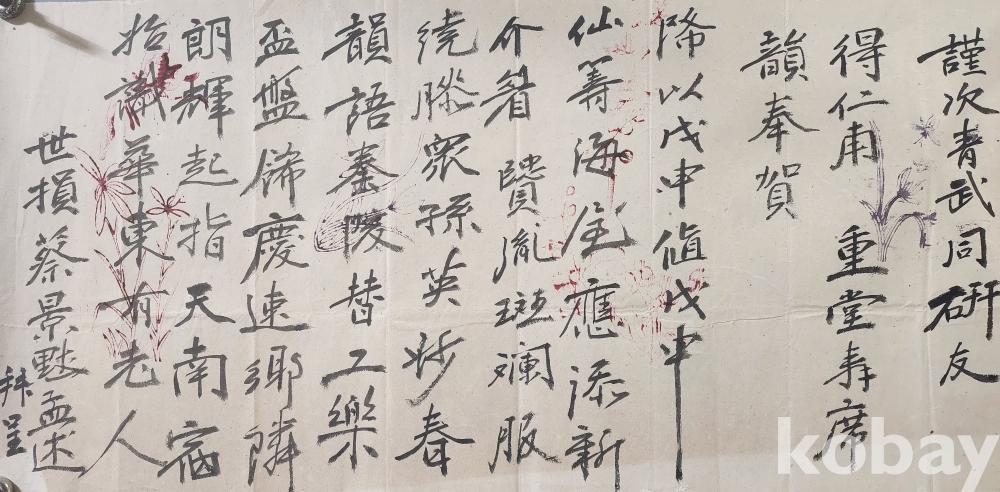 謹次青武同硏友
得仁甫 重堂壽席
韻奉賀
降以戊申値戊申
仙籌海屋應添新
介眉 賢胤斑斕服
繞膝衆孫英妙春
韻語臺陵替工樂
盃盤飾慶速鄕隣
朗輝起指天南宿
始識華東有老人
世損蔡景 孟述
拜呈
kobay